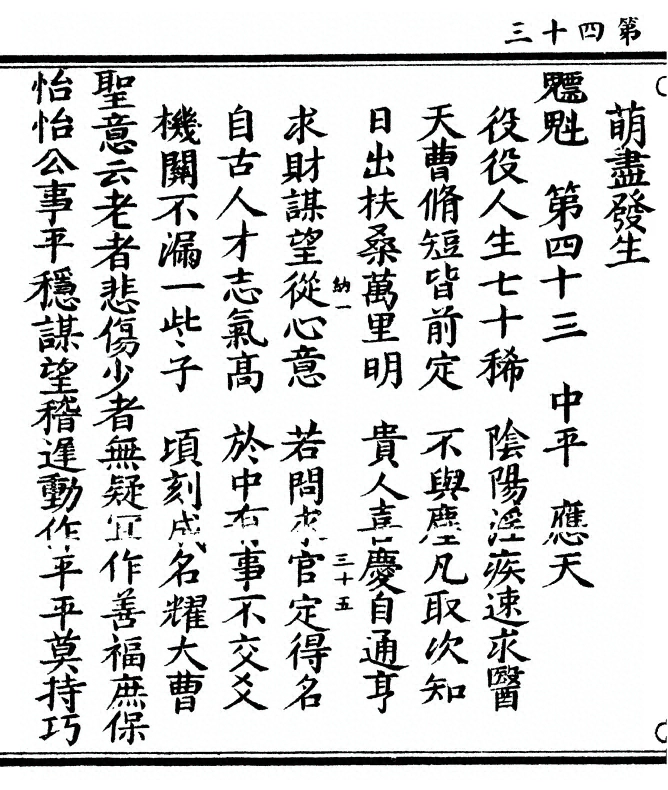 第四十三
萌盡發生
魒魁 第四十三 中平 應天
役役人生七十稀 陰陽淫疾速求醫
天曹脩短皆前定 不與塵凡取次知
日出扶桑萬里明 貴人喜慶自通亨
納一 三十五
求財謀望從心意 若問求官定得名
自古人才志氣高 於中有事不交爻
機關不漏一些〻子 頃刻成名耀大曹
聖意云老者悲傷少者無疑宜作善福庶保
怡怡公事平穩謀望稽遲動作平平莫持巧